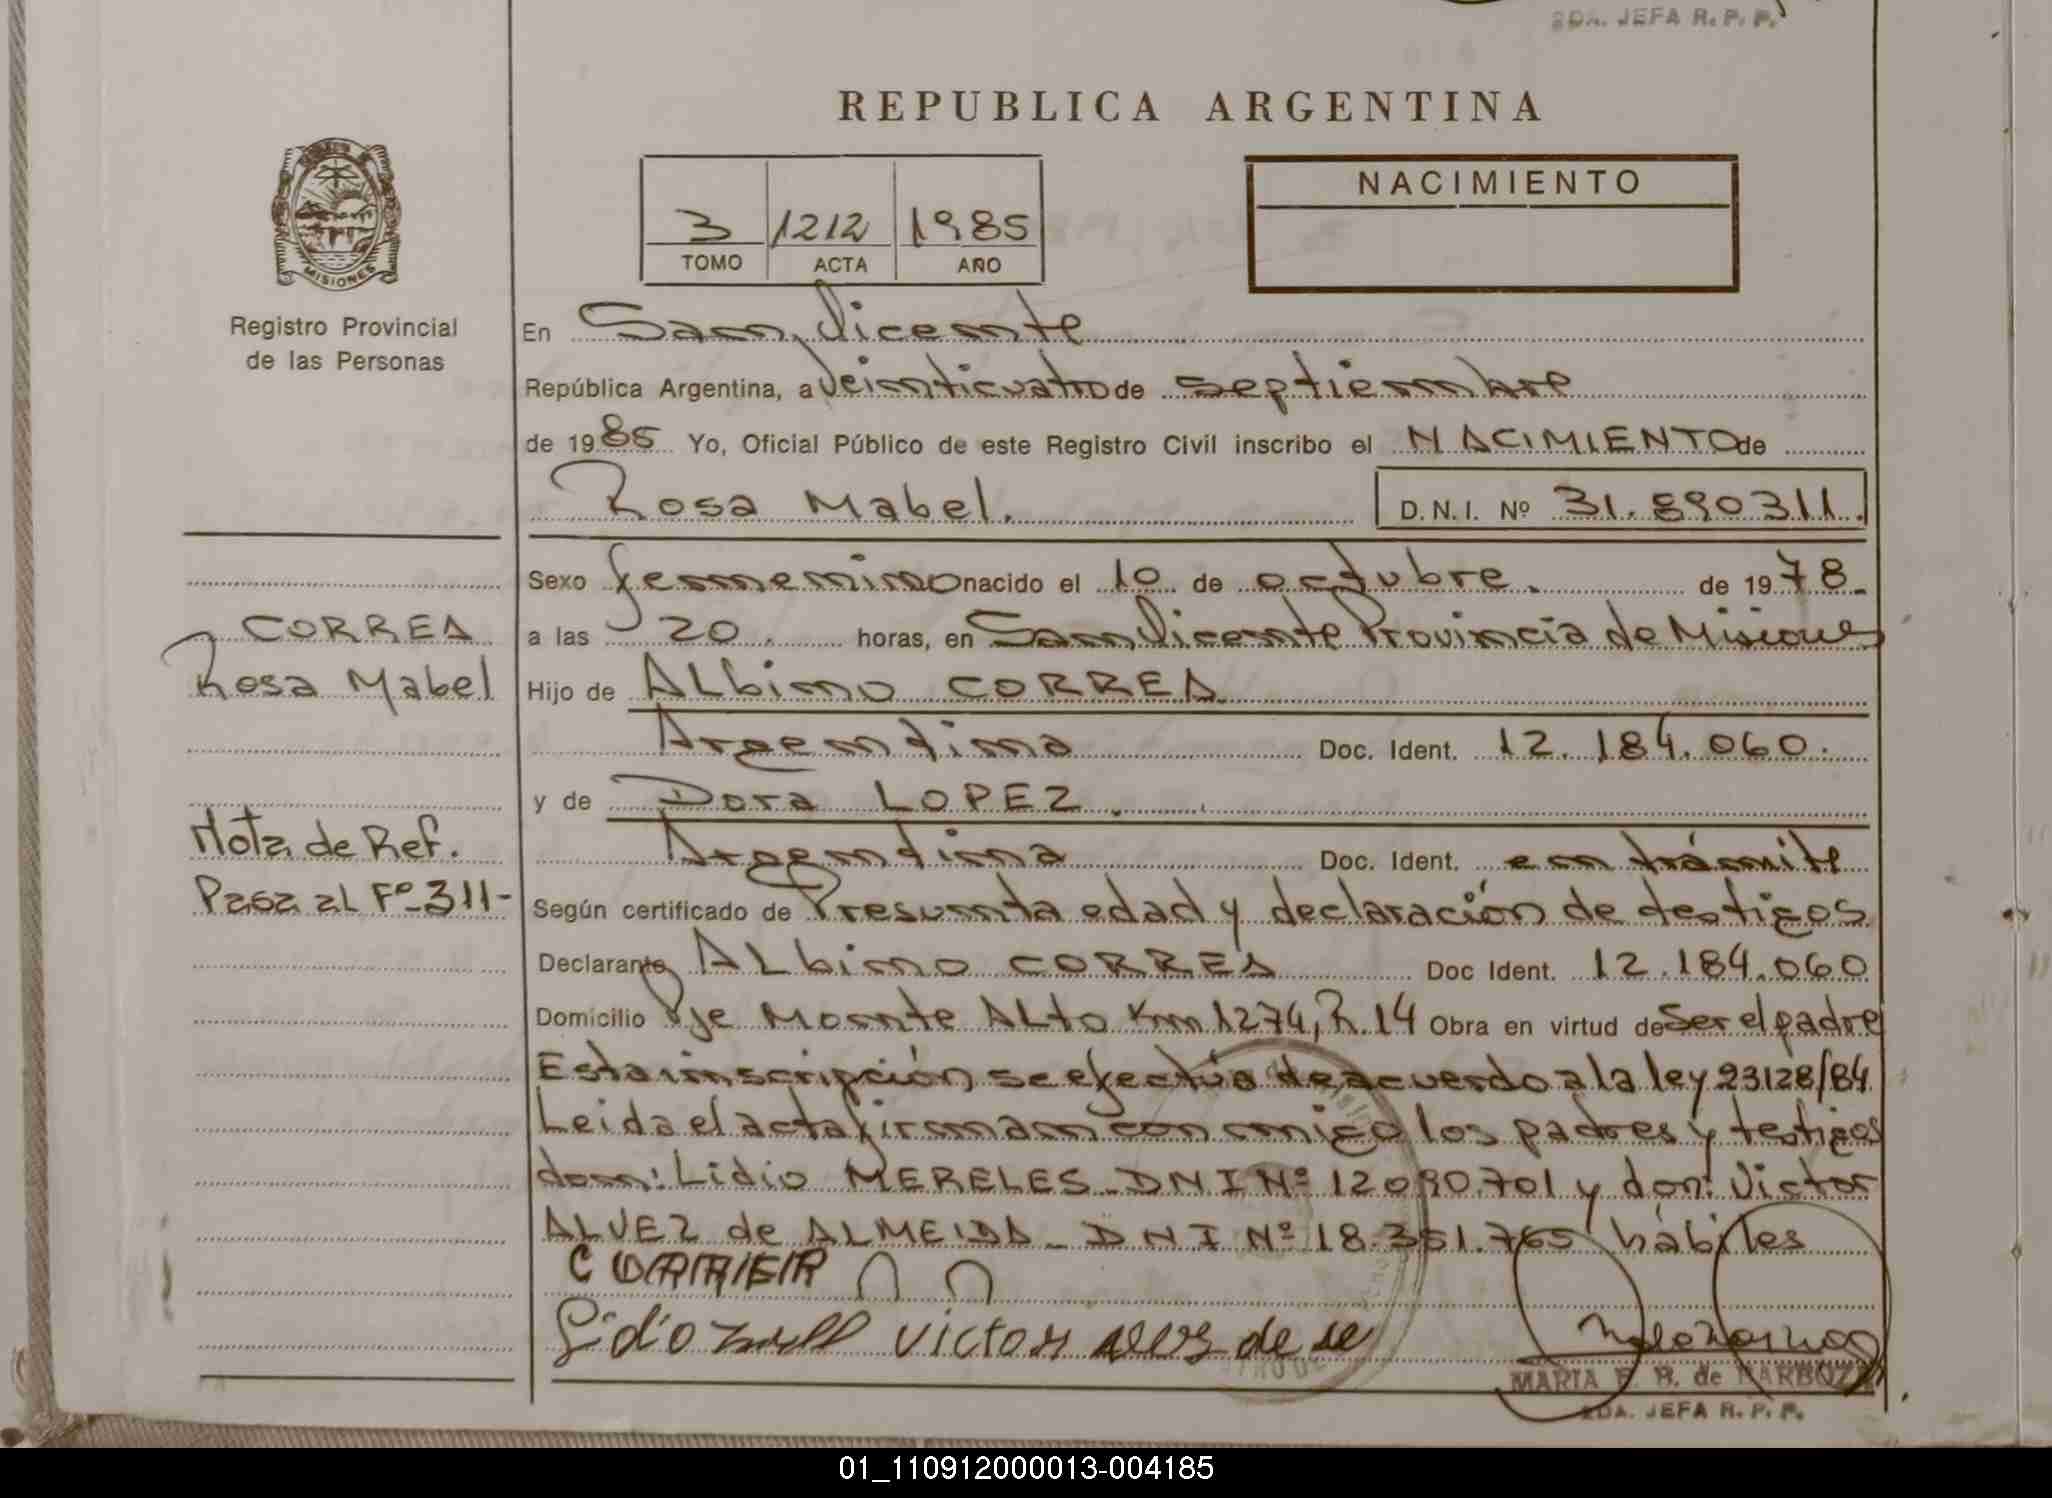 2DA. JEFA R. P. P.
REPUBLICA ARGENTINA
NACIMIENTO
3 1212 1985
TOMO ACTA AÑO
MISIONES
Registro Provincial
de las Personas
En San Vicente
República Argentina, a Veinticuatro de septiembre
de 1985 Yo, Oficial Público de este Registro Civil inscribo el NACIMIENTO de
Rosa Mabel. D.N.I. Nº 31.890311.
Sexo femenino nacido el 10 de octubre. de 1978.
CORREA
Rosa Mabel
a las 20. horas, en San Vicente Provincia de Misiones
Hijo de ALbino CORREA
Argentina Doc. Ident. 12.184.060.
y de Dora LOPEZ.
Argentina Doc. Ident. en trámite
Nota de Ref.
Pasa al Fº 311-
Según certificado de Presunta edad y declaración de testigos
Declarante ALbino CORREA Doc Ident. 12.184.060
Domicilio Pje Monte ALto Km 1274, R.14 Obra en virtud de Ser el padre
Esta inscripción se efectúa de acuerdo a la ley 23128/84
Leida el acta firman conmigo los padres y testigos
don: Lidio MERELES DNI Nº 12090.701 y don: Victor
ALVEZ de ALMEIDA - DNI Nº 18.351.765 hábiles
CORRER
Lidio victor de
MARIA E. B. de BARBOZA
2DA. JEFA R. P. P.
01_110912000013-004185